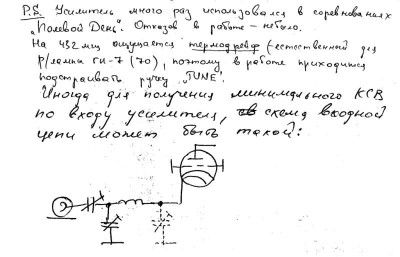 P.S. Усилитель много раз использовался в соревнованиях
„Полевой День". Отказов в работе – небыло.
На 432 мгц ощущается термодрейф (естественный для
р/лампы ГИ-7 (70), поэтому в работе приходится
подстраивать ручку „TUNE".
Иногда для получения минимального КСВ
по входу усилителя, схема входной
цепи может быть такой: